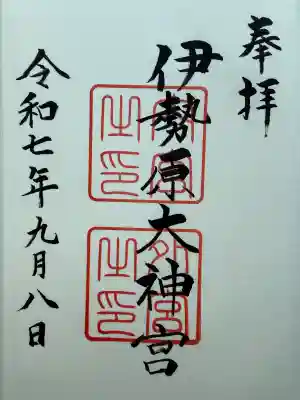 奉拝
伊勢原大神宮
令和七年九月八日